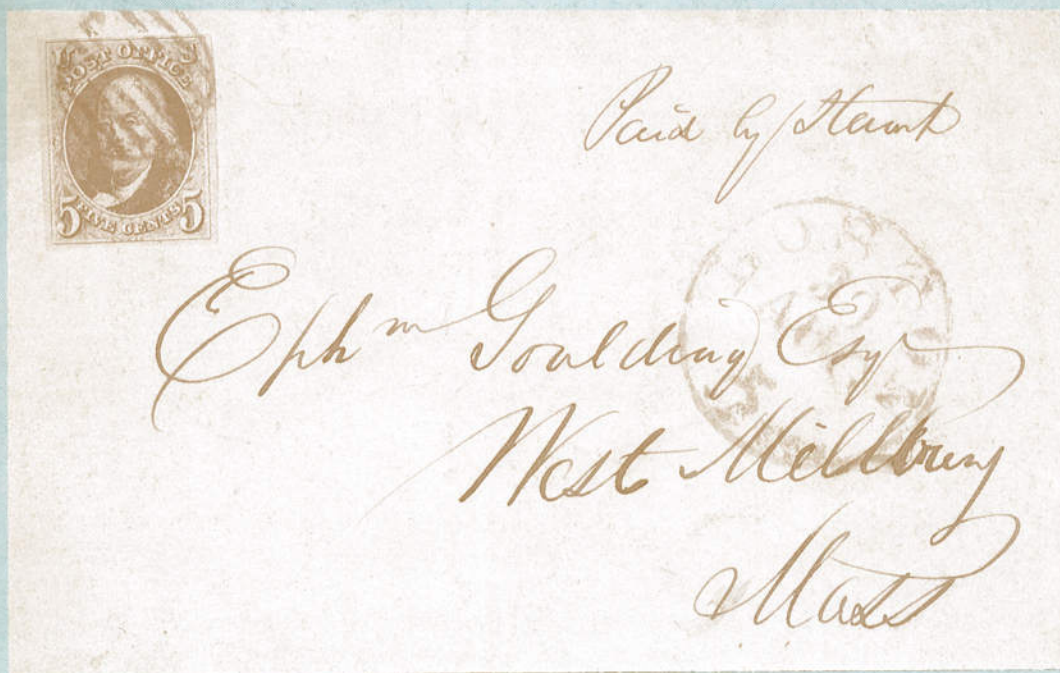 POST OFFICE
5 FIVE CENTS 5
Paid by Stamp
Ephm Goulding Esqr
West Millbury
Mass